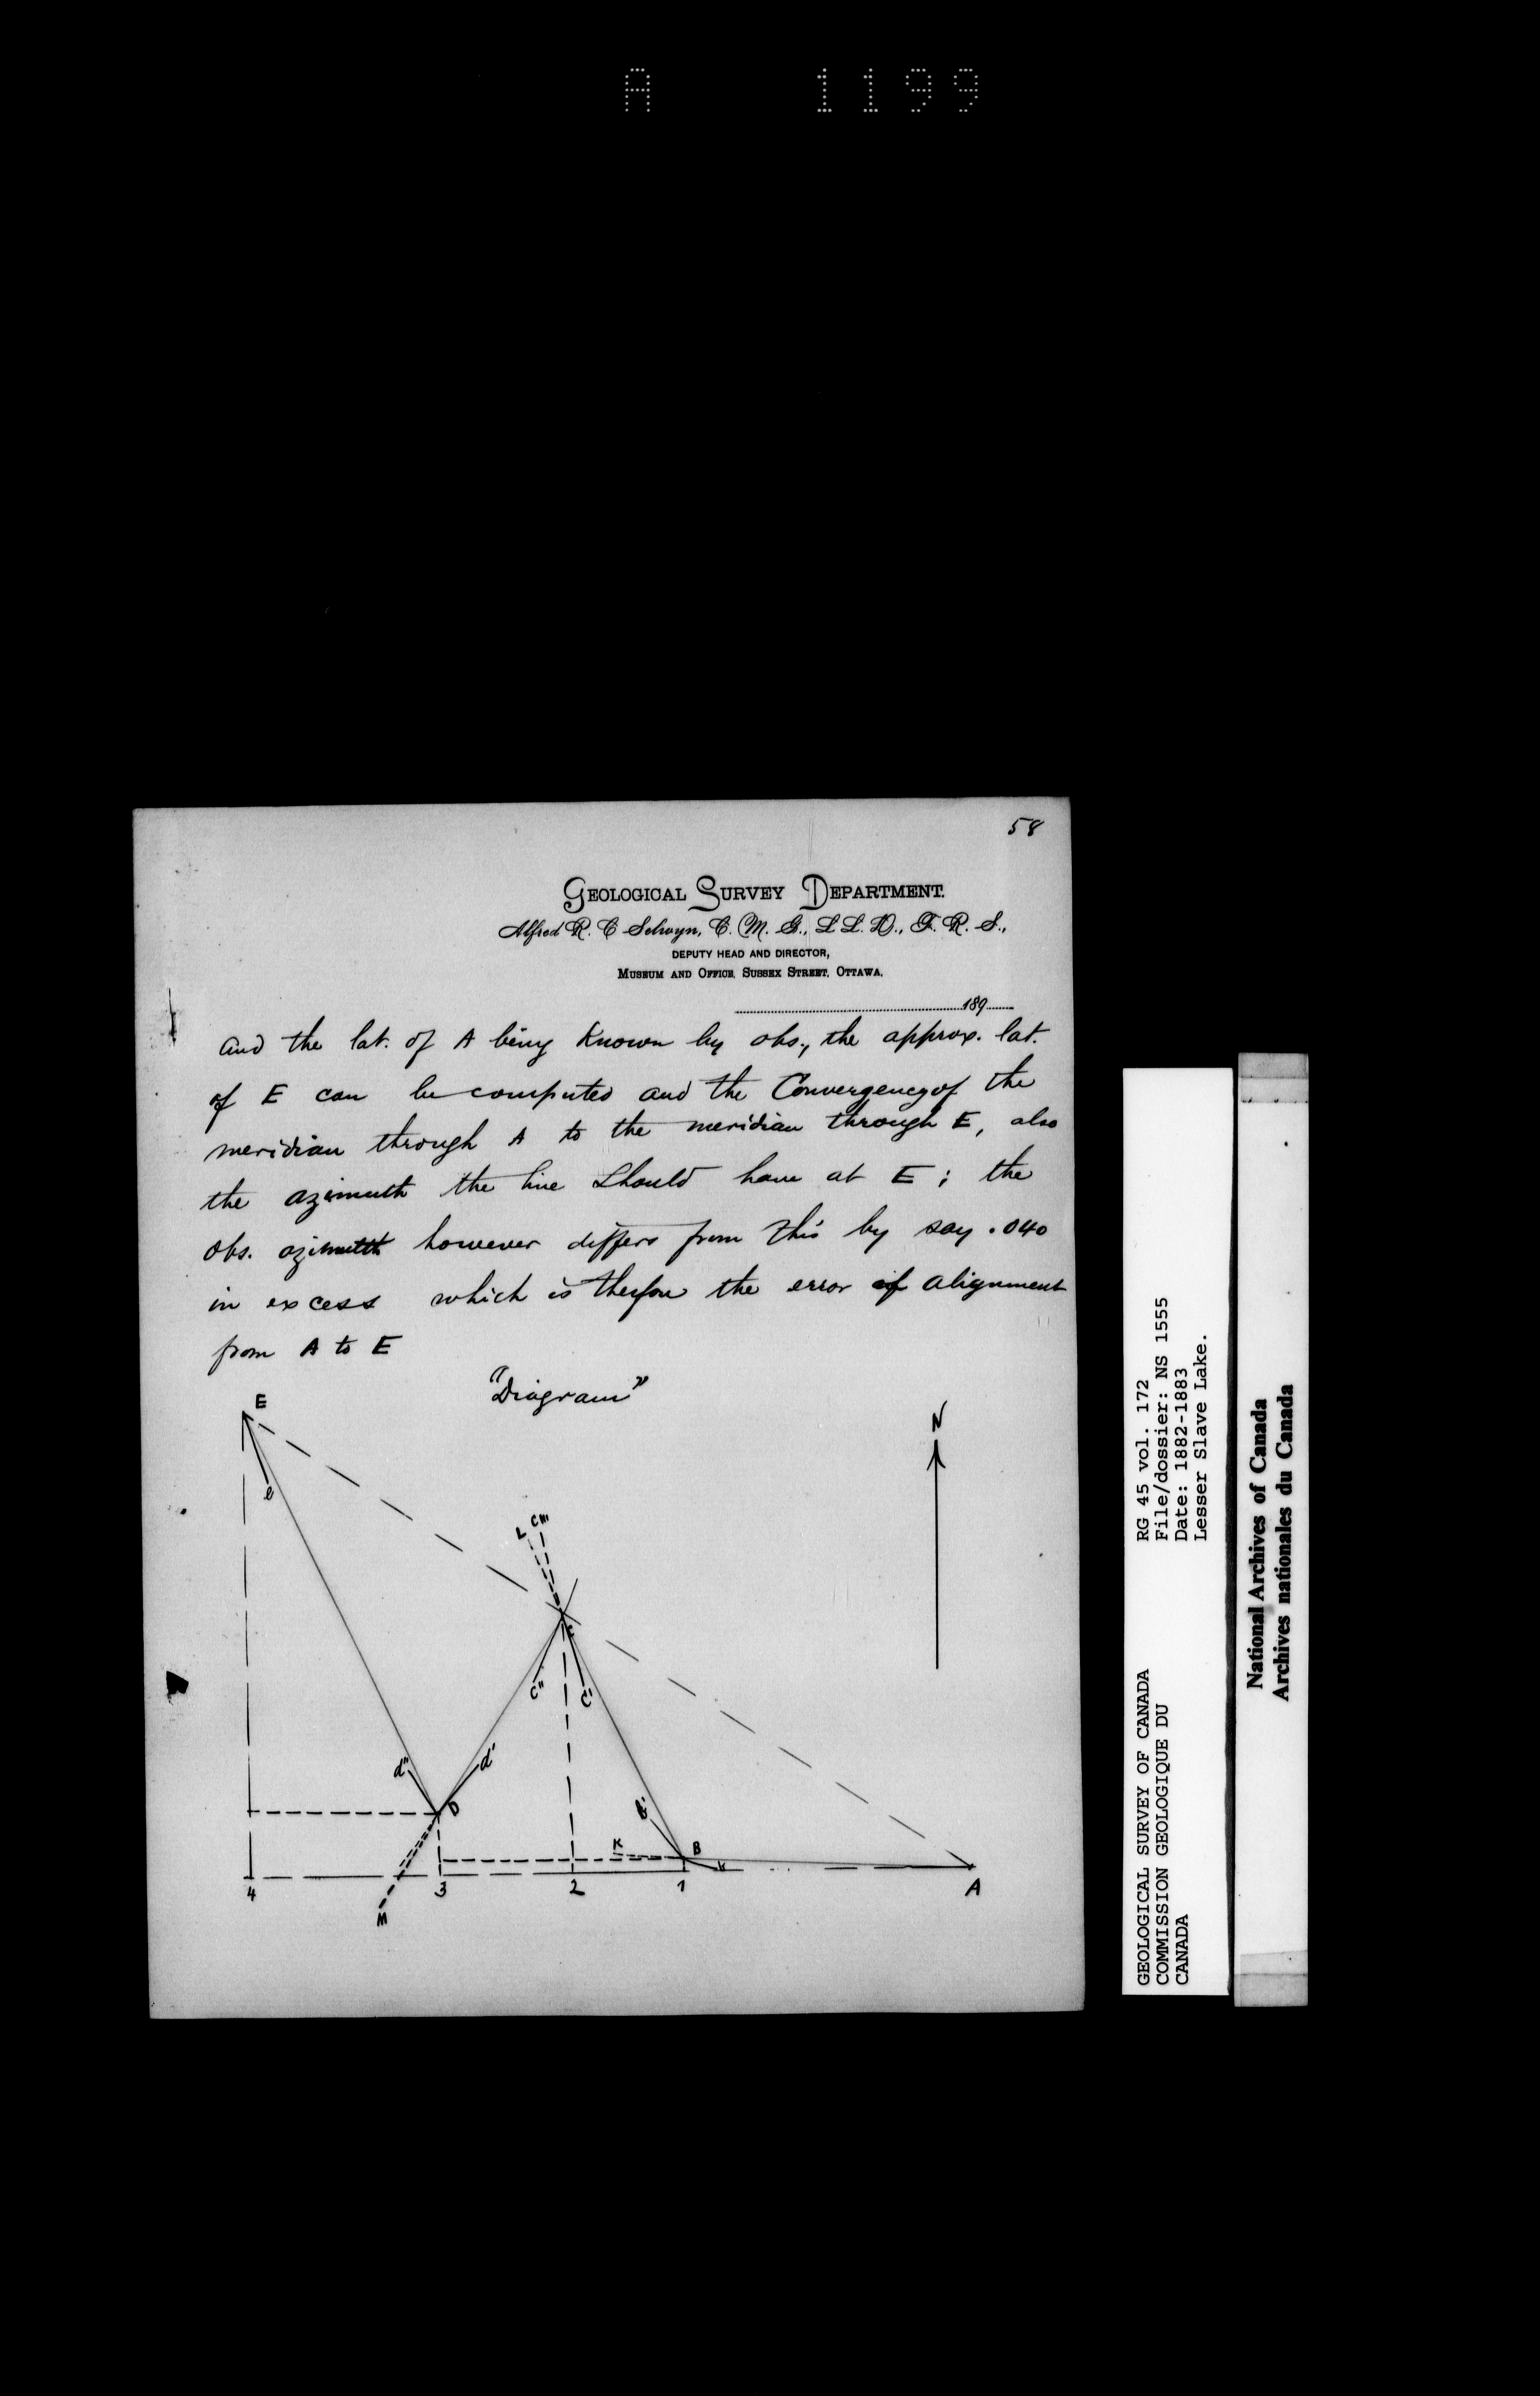 A 1199
58
GEOLOGICAL SURVEY DEPARTMENT.
Alfred R. C Selwyn, C. M. G., L L. D., F. R. S.,
DEPUTY HEAD AND DIRECTOR,
MUSEUM AND OFFICE, SUSSEX STREET, OTTAWA.
189
and the lat. of A being Known by obs., the approx. lat.
of E can be computed and the Convergency of the
meridian through A to the meridian through E, also
the azimuth the line Should have at E; the
obs. azimuth however differs from this by say .040
in excess which is therfore the error of alignment
from A to E
"Diagram"
E
N
e
L C'''
C
C" C'
d" d'
D
b'
K B
4 3 2 1 A
M
GEOLOGICAL SURVEY OF CANADA
COMMISSION GEOLOGIQUE DU
CANADA
RG 45 vol. 172
File/dossier: NS 1555
Date: 1882-1883
Lesser Slave Lake.
National Archives of Canada
Archives nationales du Canada